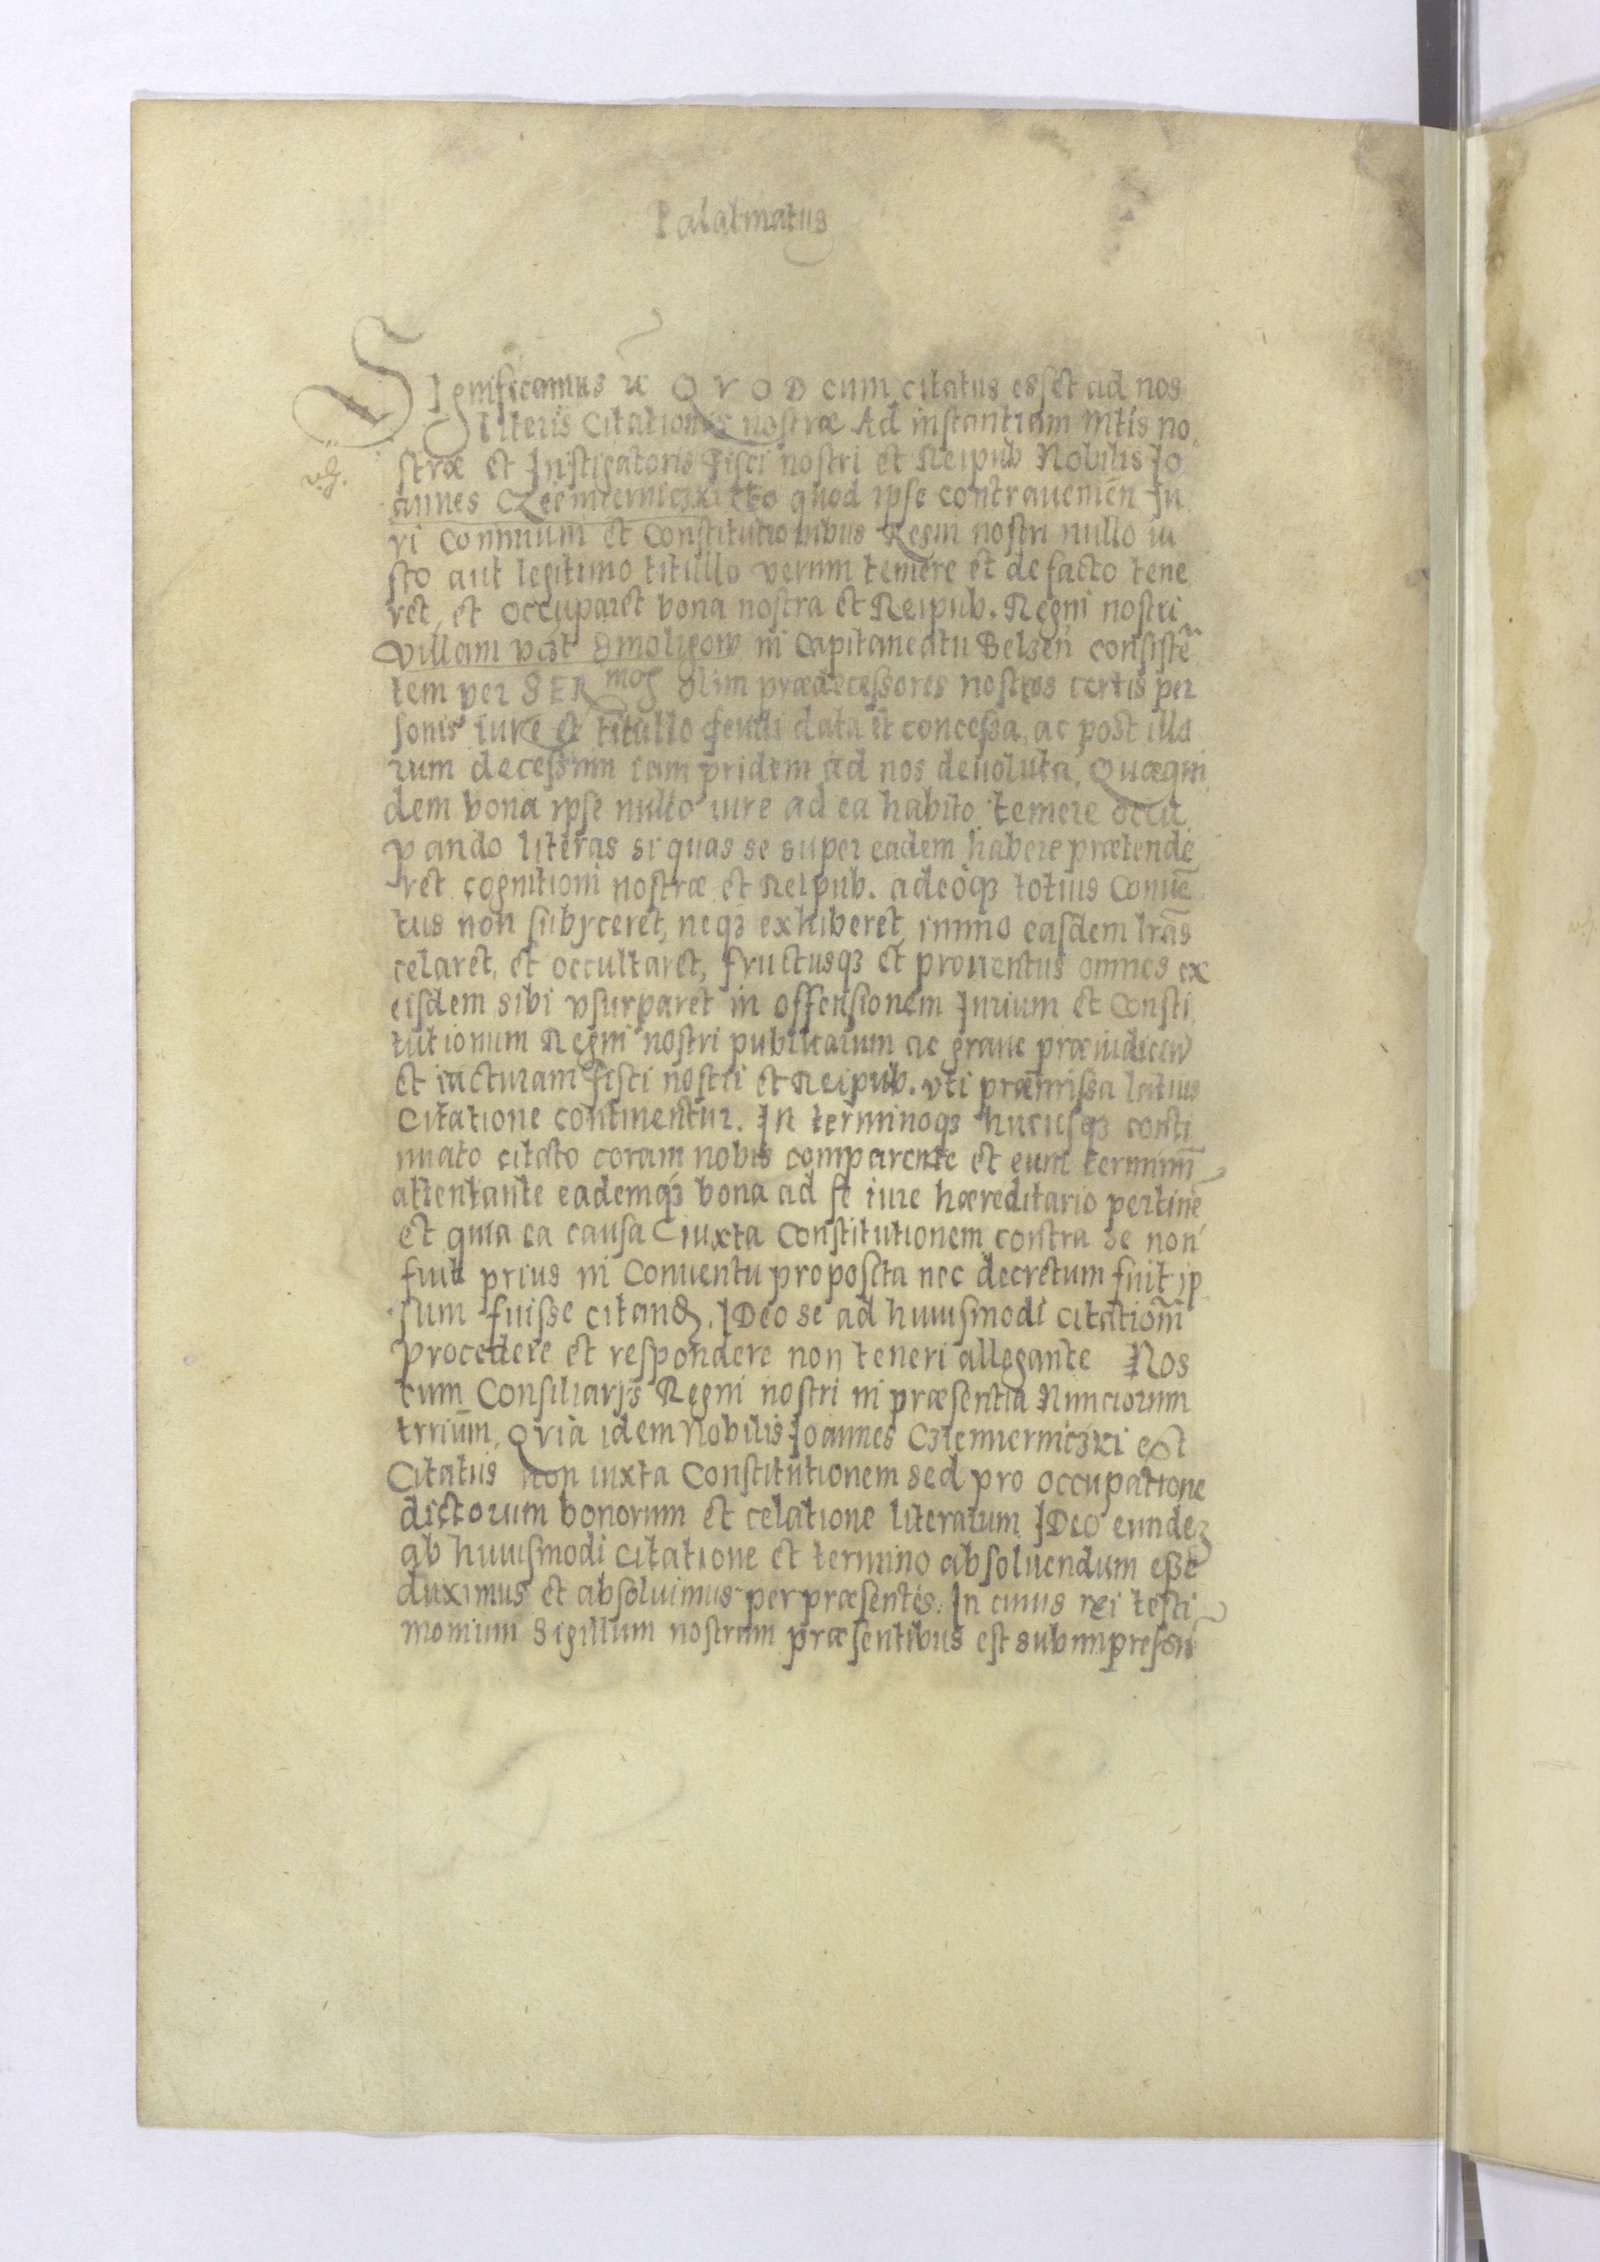 Palatinatus
SIgnificamus &c QVOD cum citatus esset ad nos
literis Citationis nostræ Ad instantiam Mtis no,
stræ et Instigatoris fisci nostri et Reipub Nobilis Jo
annes Czeemierniczki Eo quod ipse contraveniēn Ju
ri Communi et Constitutionibus Regni nostri nullo iu
sto aut legitimo titullo verum temere et de facto tene
ret, et occuparet bona nostra et Reipub. Regni nostri
villam vōt Smoligow in Capitaneatu Belzeń consistē
tem per SERmos olim prædecessores nostros certis per
sonis iure et titullo feudi data et concessa, ac post illa
rum decessum iam pridem ad nos devoluta, Quæqui
dem bona ipse nullo iure ad ea habito temere occu
pando literas si quas se super eadem habere prætende
ret cognitioni nostræ et Reipub. adeóqꝫ totius Convē
tus non subyceret, neqꝫ exhiberet, immo easdem lrās
celaret, et occultaret, fructusqꝫ et proventus omnes ex
eisdem sibi vsurparet in offensionem Jurium et Consti
tutionum Regni nostri publicarum ac grave præiudiciu
et iacturam fisci nostri et Reipub. vti præmissa latius
Citatione continentur. In terminoqꝫ hucusqꝫ conti
nuato citato coram nobis comparente et eum terminū
attentante eademqꝫ bona ad se iure hæreditario pertine
et quia ea causa iuxta Constitutionem contra se non
fuit prius in Conventu proposita nec decretum fuit ip
sum fuisse citand, IDeo se ad huiusmodi citationē
procedere et respondere non teneri allegante Nos
cum Consiliarys Regni nostri in præsentia Nunciorum
trrium, Qvia idem Nobilis Joannes Cziemierniczki est
Citatus non iuxta Constitutionem sed pro occupatione
dictorum bonorum et celatione literarum IDeo eundeꝫ
ab huiusmodi citatione et termino absoluendum esse
duximus et absoluimus per præsentes. In cuius rei testi
monium Sigillum nostrum præsentibus est subimpressu